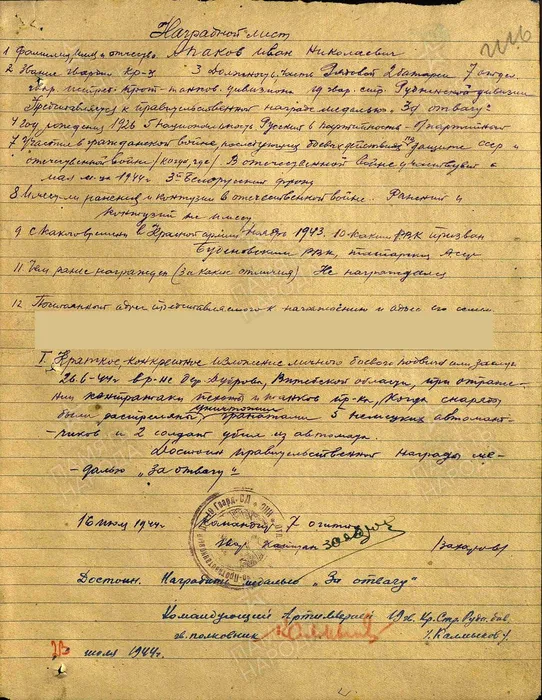 Наградной лист
1 Фамилия, имя и отчество Апаков Иван Николаевич
2 Наше звание кр-ц 3 Должность, часть Рядовой 2 батареи 7 отдел.
гвар. истреб. прот. танков. дивизиона 19 гвар. стр. Рудненской дивизии
Представляется к правительственной награде медалью "За отвагу"
4 год рождения 1926 5 национальность Русский 6 партийность б/партийный
7 Участие в гражданской войне, последующих боевых действиях по защите СССР и
отечественной войне (когда, где) В отечественной войне участвует с
мая м-ца 1944г. 3й Белорусский фронт
8 Имеет ли ранения и контузии в отечественной войне. Ранений и
контузий не имеет
9 С какого времени в Красной армии ноябрь 1943. 10 Каким РВК призван
РВК, Татарской АССР
11 Чем ранее награжден (за какие отличия) Не награждался
12 Постоянный адрес представляемого к награждению и адрес его семьи.
I. Краткое, конкретное изложение личного боевого подвига или заслуг
26.6-44г в р-не дер Дуброва, Витебской области, при отраже-
нии контратаки пехоты и танков пр-ка, когда снаряды
были расстреляны, уничтожил гранатами 5 немецких автомат-
чиков и 2 солдат убил из автомата.
Достоин правительственной награды ме-
далью "За отвагу"
16 июля 1944г. Командир 7 огиптд
Гвар. Капитан Захаров
Достоин. Наградить медалью "За отвагу"
Командующий Артиллерией 19 гв. Кр. Стр. Рудн. див.
гв. полковник /Калмыков/
июля 1944г.